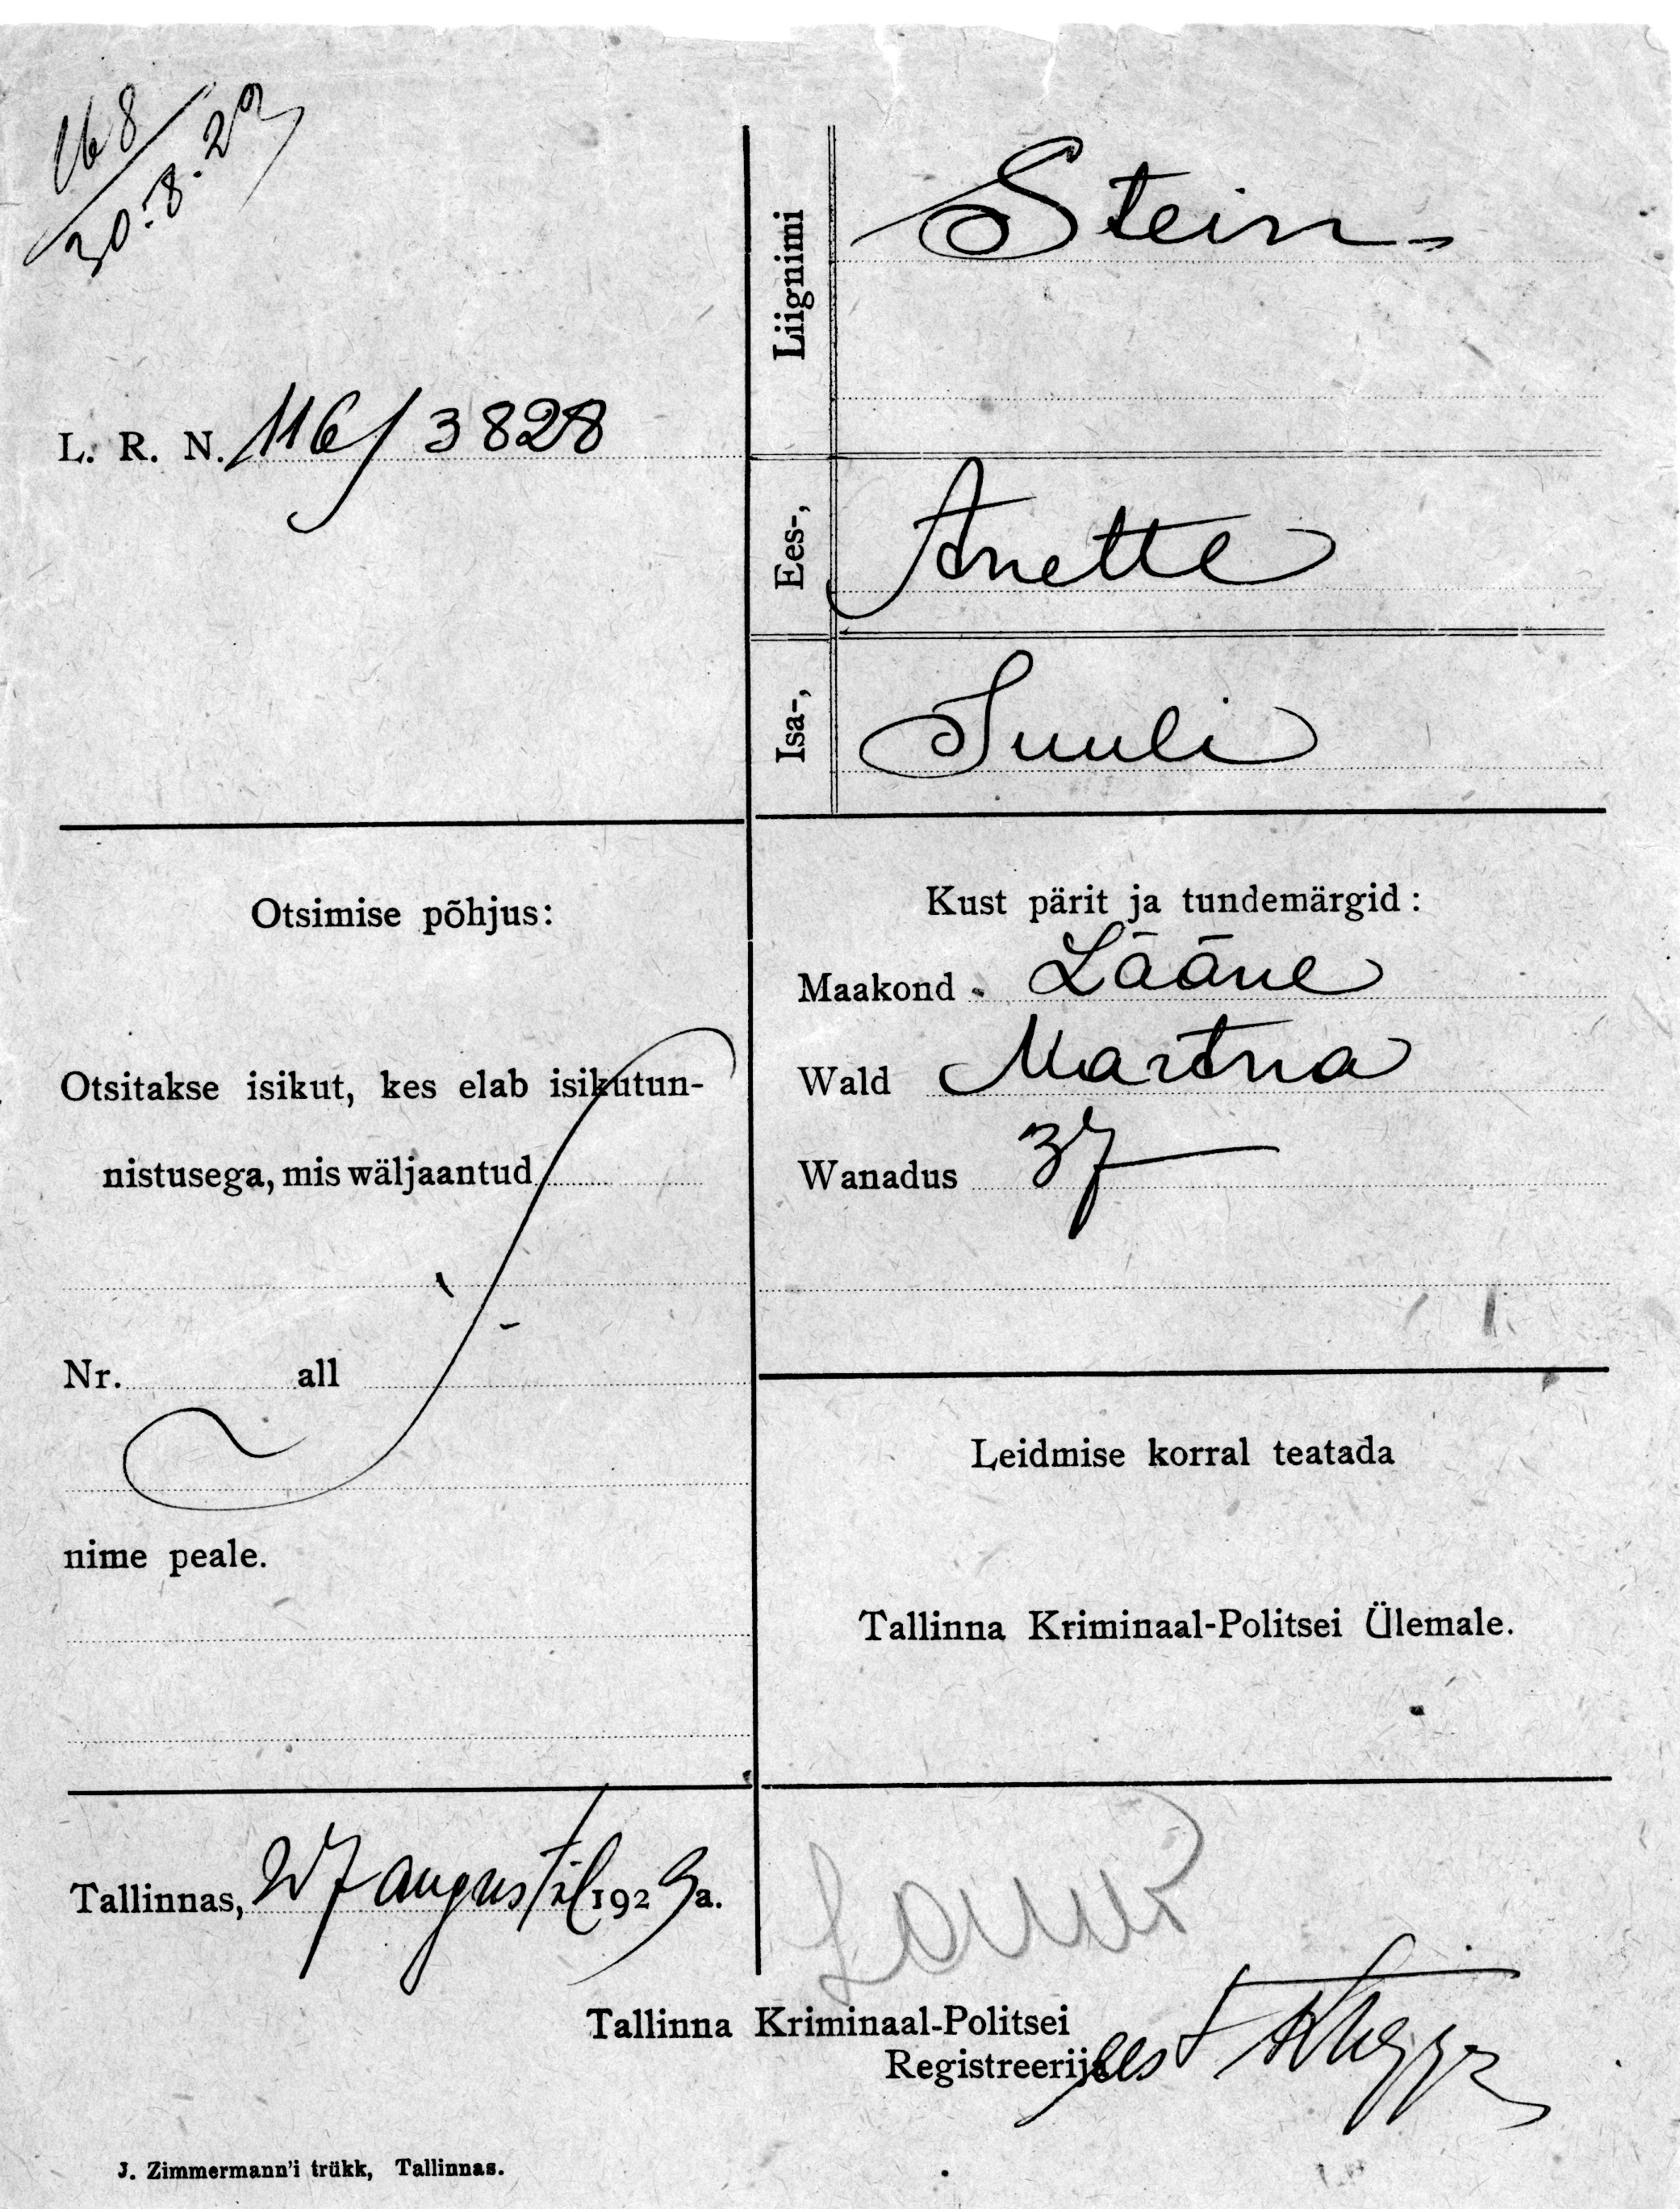 168
30.8.29
L. R. N. 116/3828
Liignimi Stein
Ees-, Anette
Isa-, Juuli
Otsimise põhjus:
Otsitakse isikut, kes elab isikutun-
nistusega, mis wäljaantud
Nr. all
nime peale.
Kust pärit ja tundemärgid:
Maakond Lääne
Wald Martna
Wanadus 37
Leidmise korral teatada
Tallinna Kriminaal-Politsei Ülemale.
Tallinnas, 27 augustil 1929 a.
Tallinna Kriminaal-Politsei
Registreerija
J. Zimmermann'i trükk, Tallinnas.